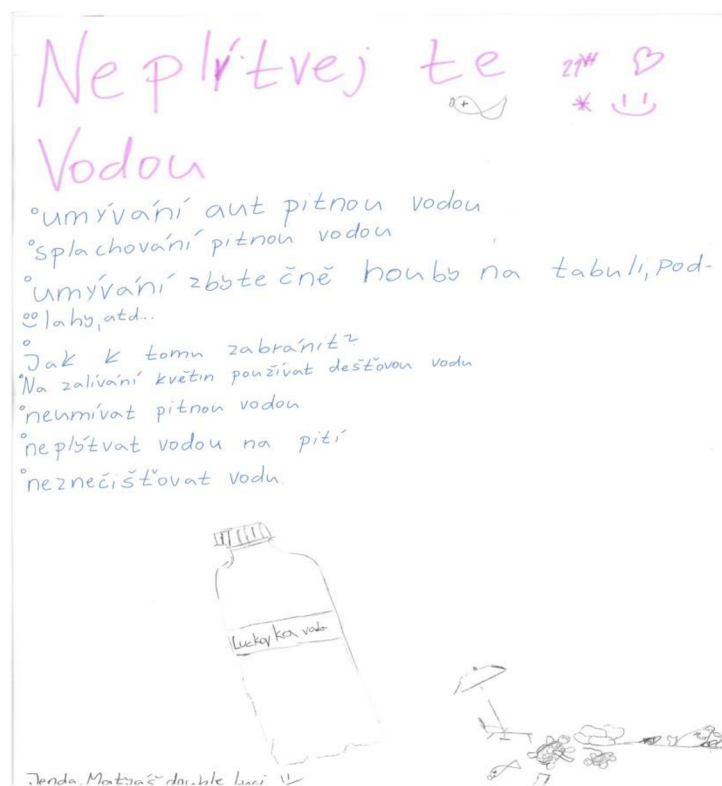 Neplýtvej te
Vodou
°umývání aut pitnou vodou
°splachování pitnou vodou
°umývání zbytečně houby na tabuli, pod-
lahy, atd...
°Jak k tomu zabránit?
°Na zalívání květin používat dešťovou vodu
°neumívat pitnou vodou
°neplýtvat vodou na pití
°neznečišťovat vodu
voda
Jenda, Matyáš double luci